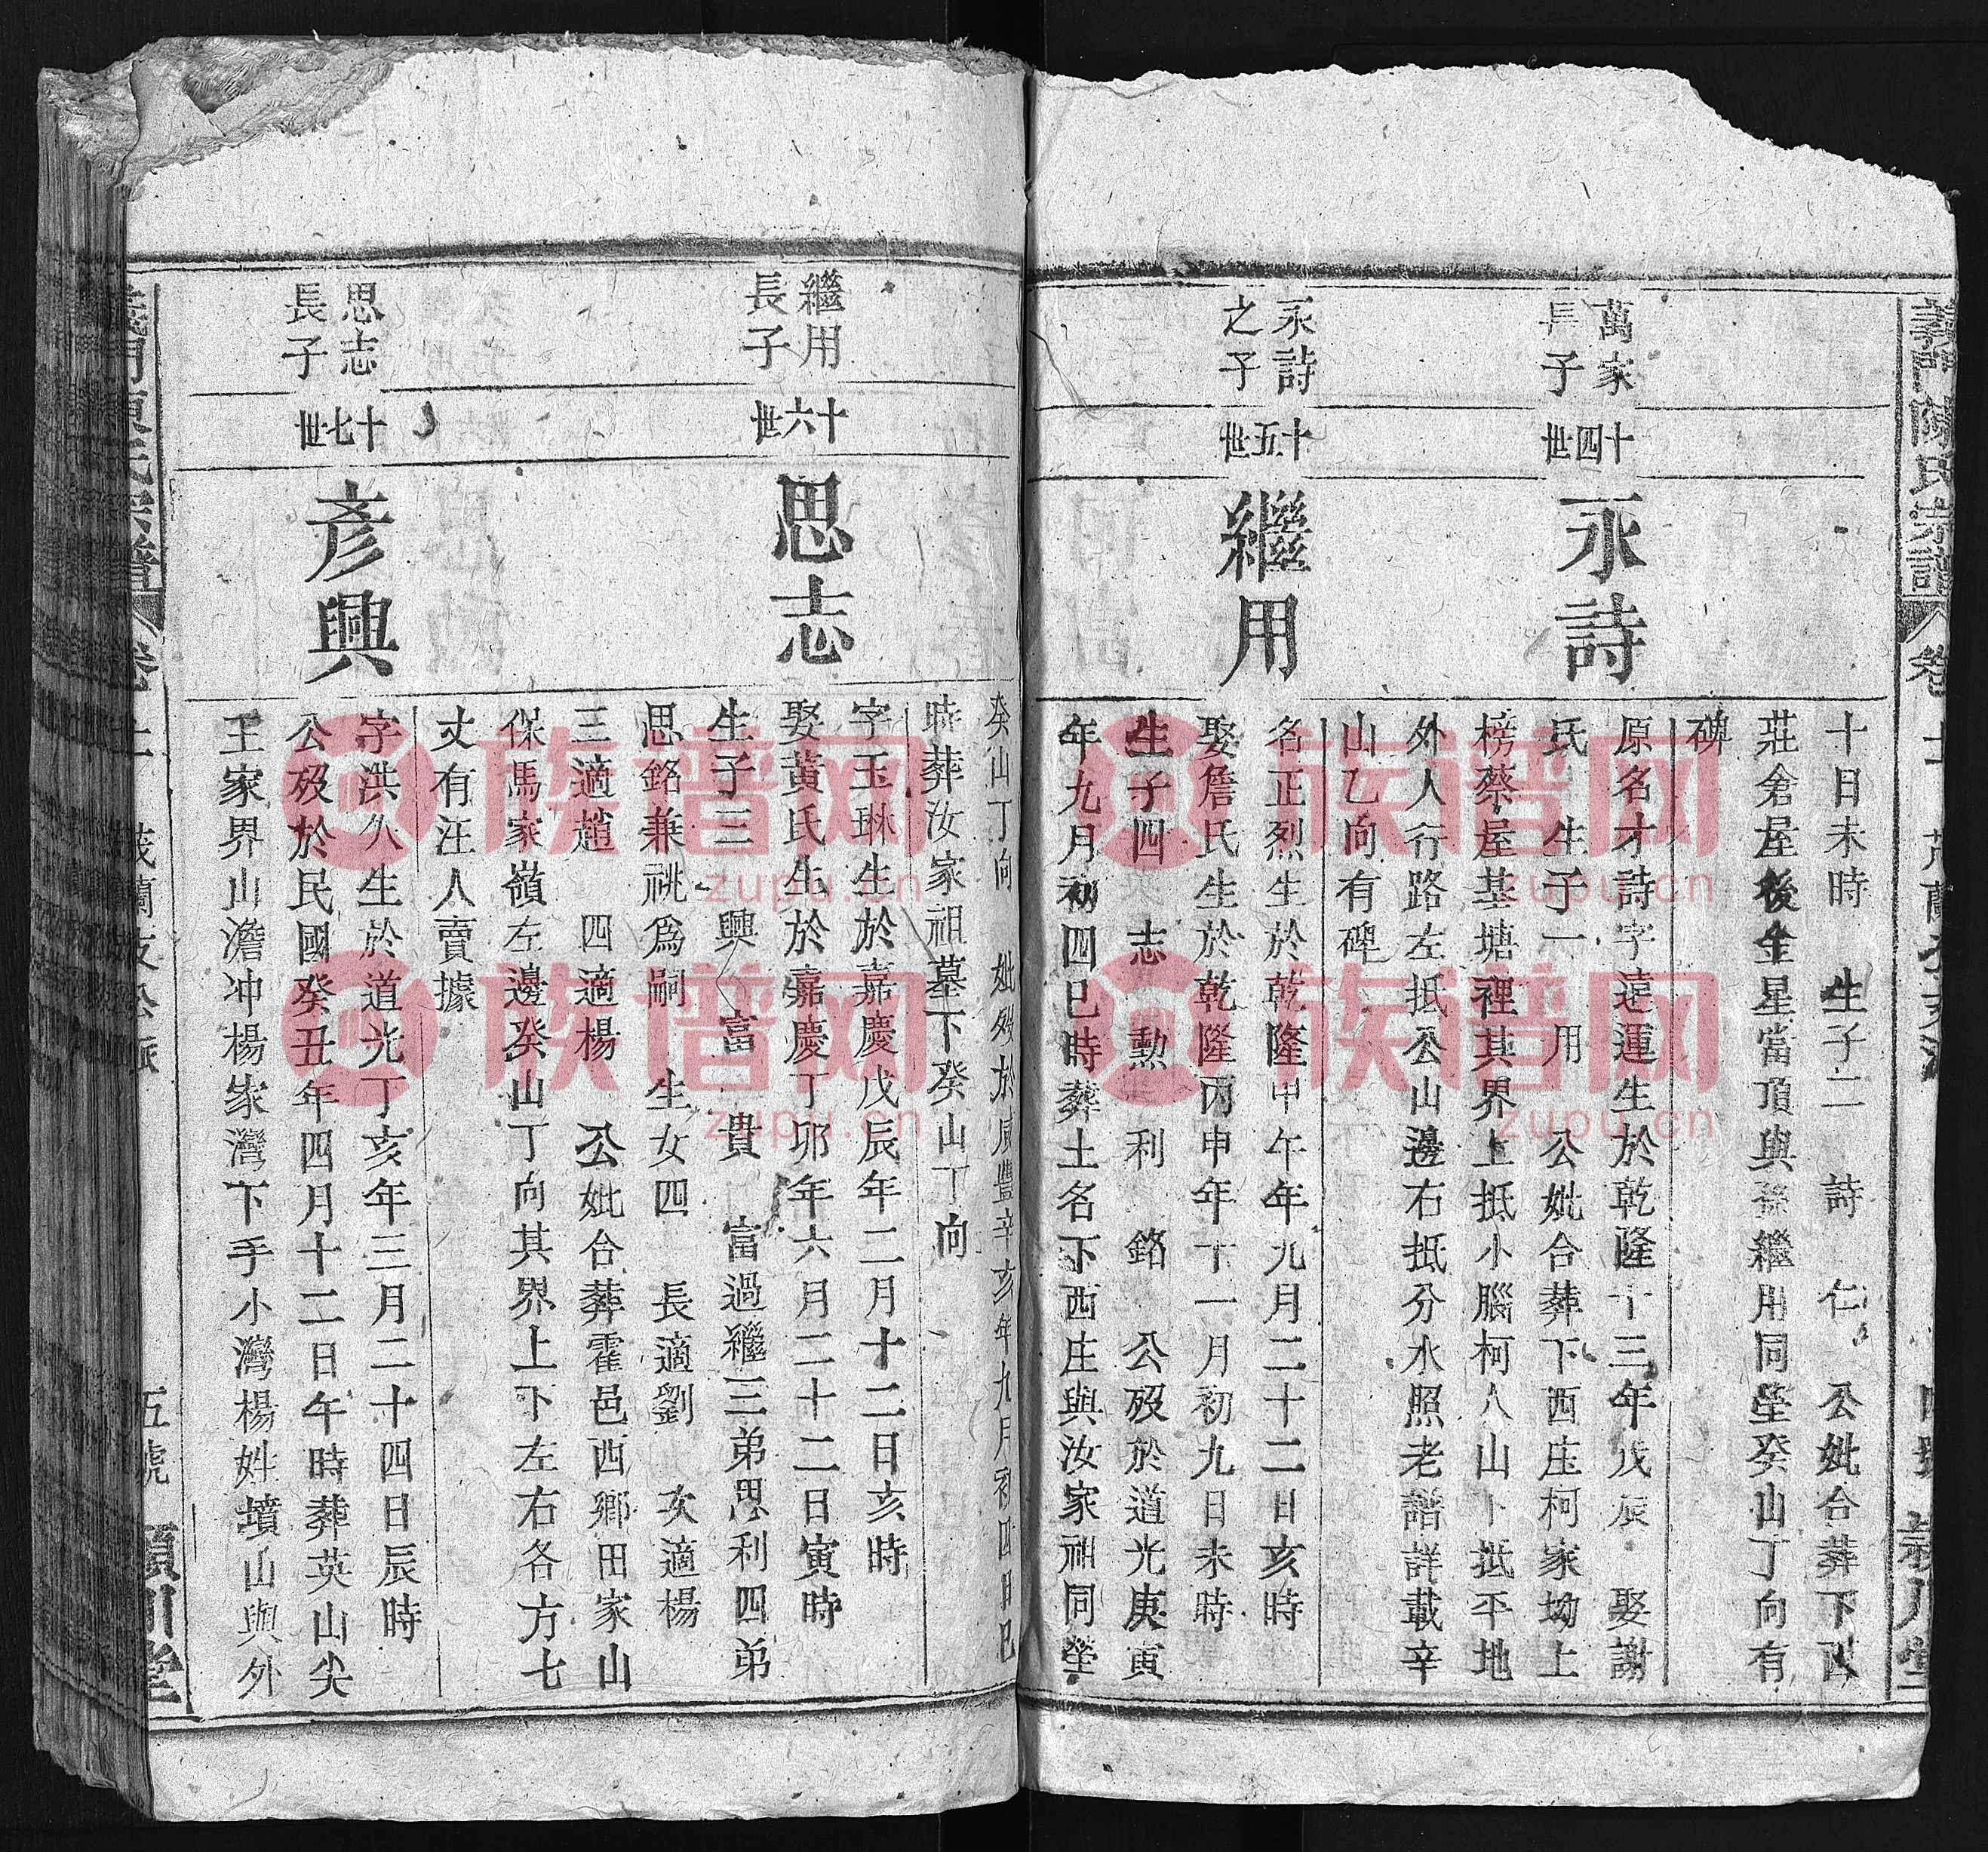 義門陳氏宗譜
卷十
四號
十日未時 生子二 詩 仁 公妣合葬下西
莊倉屋後金星當頂與孫繼用同塋癸山丁向有
碑
萬家
長子
十四世
永詩
原名才詩字遠運生於乾隆十三年戊辰 娶謝
氏 生子一 用 公妣合葬下西庄柯家坳上
榜蔡屋基塘裡其界上抵小腦柯人山下抵平地
外人行路左抵公山邊右抵分水照老譜詳載辛
山乙向有碑
永詩
之子
十五世
繼用
名正烈生於乾隆甲午年九月二十二日亥時
娶詹氏生於乾隆丙申年十一月初九日未時
生子四 志 勲 利 銘 公殁於道光庚寅
年九月初四巳時葬土名下西庄與汝家祖同塋
癸山丁向 妣殁於咸豐辛亥年九月初四日巳
時葬汝家祖墓下癸山丁向
繼用
長子
十六世
思志
字玉琳生於嘉慶戊辰年二月十二日亥時
娶黄氏生於嘉慶丁卯年六月二十二日寅時
生子三 興 富 貴 富過繼三弟思利四弟
思銘兼祧爲嗣 生女四 長適劉 次適楊
三適趙 四適楊 公妣合葬霍邑西鄉田家山
保馬家嶺左邊癸山丁向其界上下左右各方七
丈有汪人賣據
思志
長子
十七世
彦興
字洪久生於道光丁亥年三月二十四日辰時
公殁於民國癸丑年四月十二日午時葬英山尖
王家界山澹冲楊家灣下手小灣楊姓墳山與外
五號
潁川堂
族谱网
zupu.cn
族谱网
zupu.cn
族谱网
zupu.cn
族谱网
zupu.cn